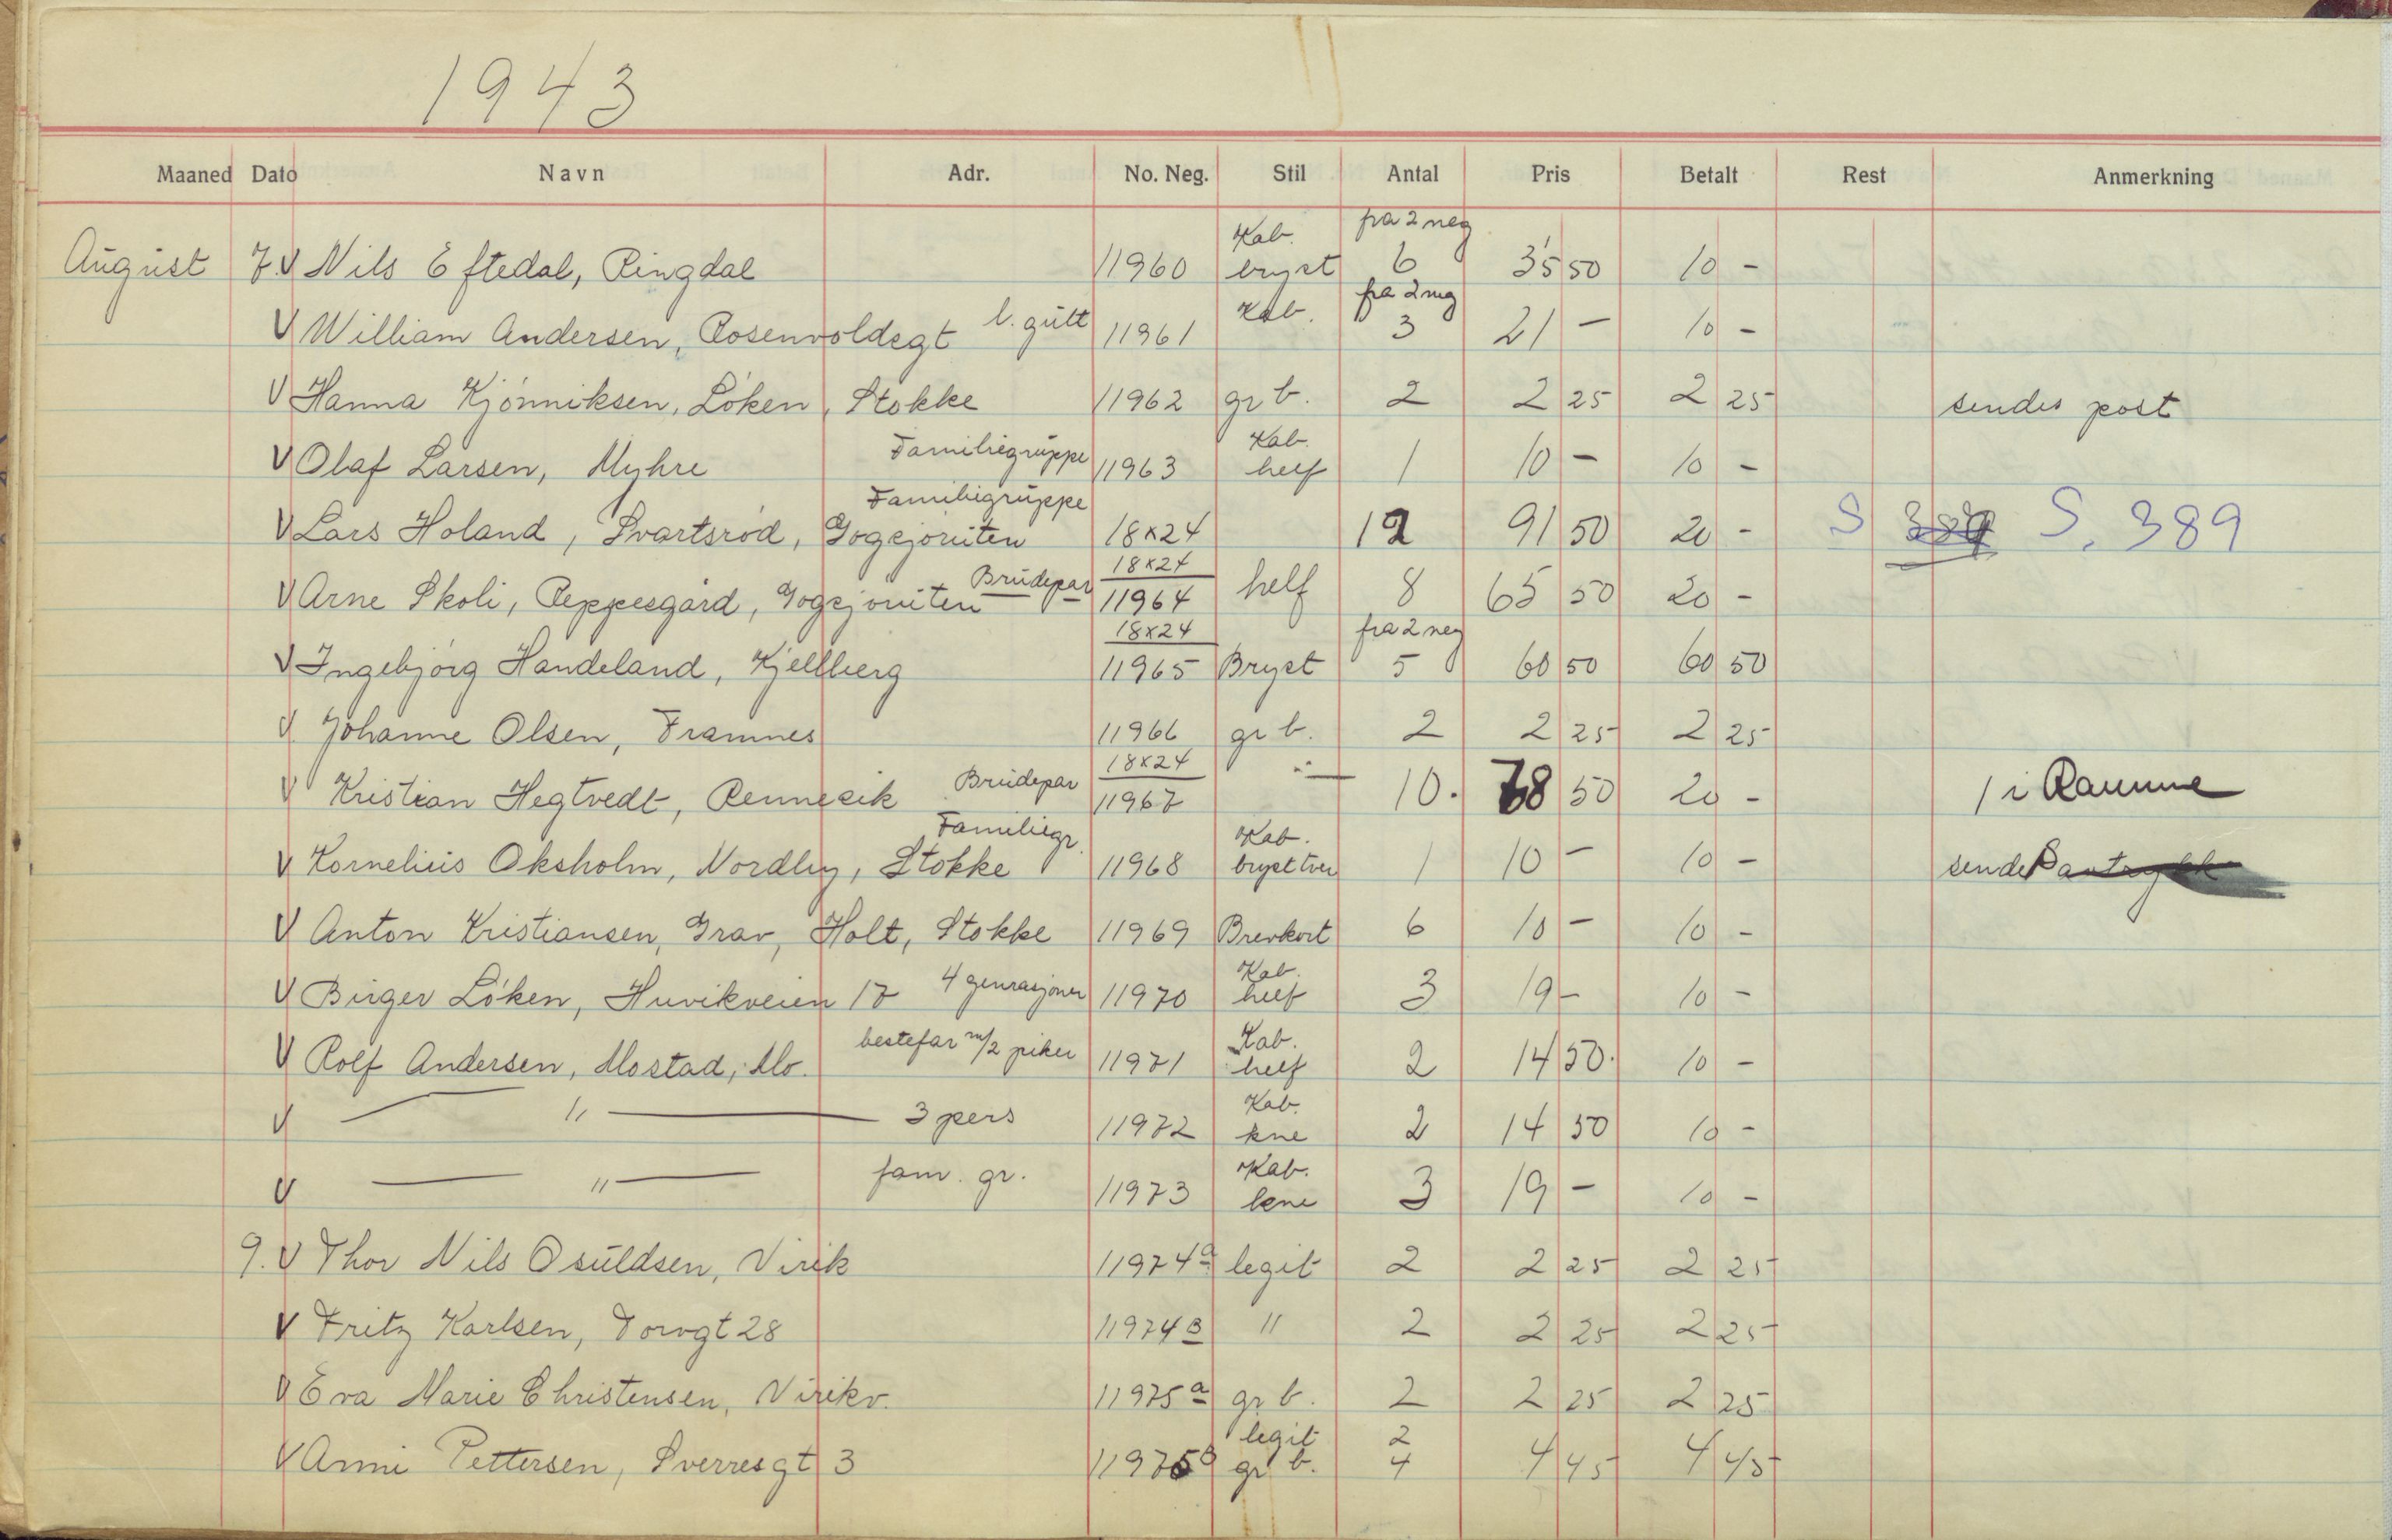 1943
Maaned Dato Navn Adr. No. Neg. Stil Antal Pris Betalt Rest Anmerkning
August 7. V Nils Eftedal, Ringdal 11960 Kab. bryst fra 2 neg 6 35 50 10 -
V William Andersen, Rosenvoldsgt l. gutt 11961 Kab. fra 2 neg 3 21 - 10 -
V Hanna Kjönniksen, Löken, Stokke 11962 gr b. 2 2 25 2 25 sendes post
V Olaf Larsen, Myhre Familiegruppe 11963 Kab. helf 1 10 - 10 -
V Lars Holand, Svartsrød, Gogsjøruten Familiegruppe 18x24 12 91 50 20 - S 389 S. 389
V Arne Skoli, Reppesgård, Gogsjøruten Brudepar 18x24 11964 helf 8 65 50 20 -
V Ingebjørg Handeland, Kjellberg 18x24 11965 Bryst fra 2 neg 5 60 50 60 50
V Johanne Olsen, Framnes 11966 gr b. 2 2 25 2 25
V Kristian Hegtvedt, Rennesik Brudepar 18x24 11967 -"- 10. 78 50 20 - 1 i Ramme
V Kornelius Oksholm, Nordby, Stokke Familiegr. 11968 Kab. bryst tver 1 10 - 10 - sendes
V Anton Kristiansen, Grav, Holt, Stokke 11969 Brevkort 6 10 - 10 -
V Birger Löken, Huvikveien 17 4 genrasjoner 11970 Kab. helf 3 19 - 10 -
V Rolf Andersen, Mostad, Mo. bestefar m/2 piker 11971 Kab. helf 2 14 50. 10 -
V — " — 3 pers 11972 Kab. kne 2 14 50 10 -
V — " — fam. gr. 11973 Kab. kne 3 19 - 10 -
9. V Thor Nils Osuldsen, Virik 11974a legit 2 2 25 2 25
V Fritz Karlsen, Torvgt 28 11974B " 2 2 25 2 25
V Eva Marie Christensen, Virikv. 11975a gr b. 2 2 25 2 25
V Anni Pettersen, Sverresgt 3 11975B legit gr b. 2 4 4 45 4 45